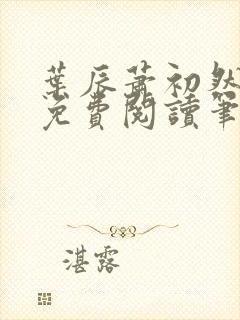 葉辰蕭初然
免費閱讀筆
湛露